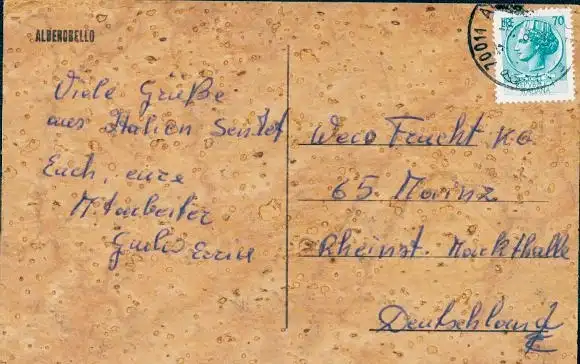 ALBEROBELLO
Viele Grüße
aus Italien sendet
Euch, eure
Mitarbeiter
Weco Frucht KG
65 Mainz
Rheinst. Markthalle
Deutschland
70011 A
LIRE 70